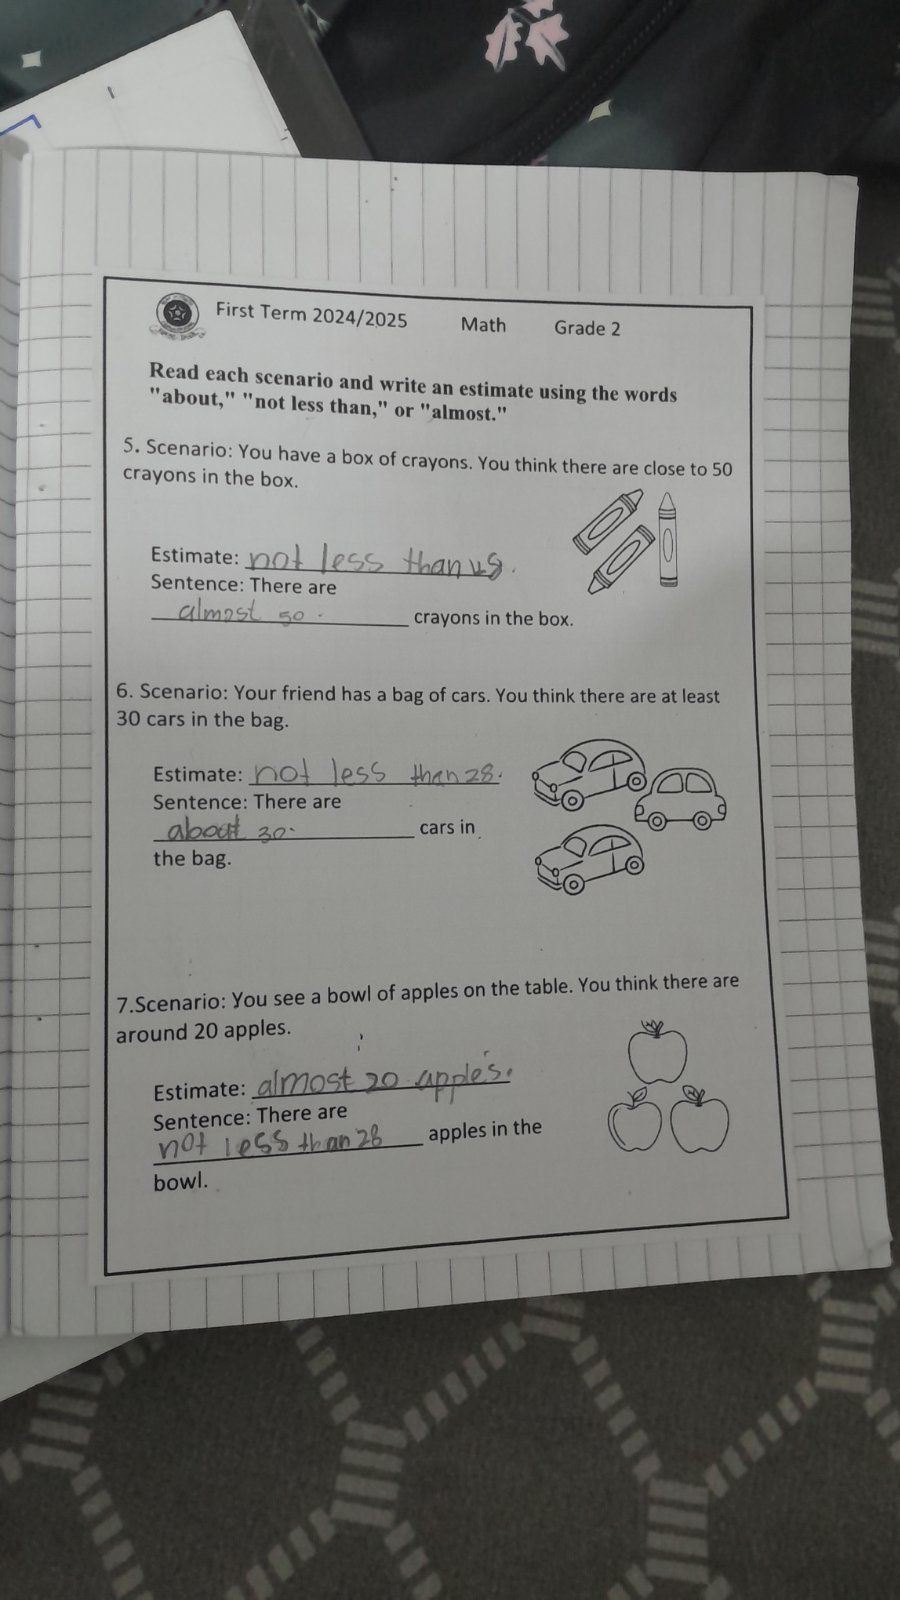 First Term 2024/2025 Math Grade 2
Read each scenario and write an estimate using the words
"about," "not less than," or "almost."
5. Scenario: You have a box of crayons. You think there are close to 50
crayons in the box.
Estimate: not less than 48.
Sentence: There are
almost 50. crayons in the box.
6. Scenario: Your friend has a bag of cars. You think there are at least
30 cars in the bag.
Estimate: not less than 28.
Sentence: There are
about 30. cars in
the bag.
7.Scenario: You see a bowl of apples on the table. You think there are
around 20 apples.
Estimate: almost 20 apples.
Sentence: There are
not less than 28 apples in the
bowl.